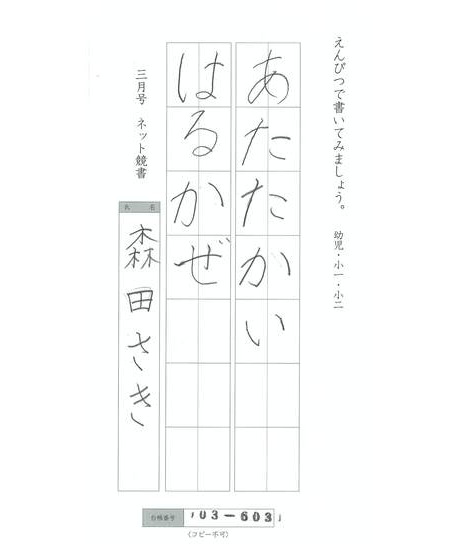 えんぴつで書いてみましょう。
幼児・小一・小二
あたたかい
はるかぜ
三月号 ネット競書
氏名
森田さき
台帳番号
03-603
(コピー不可)